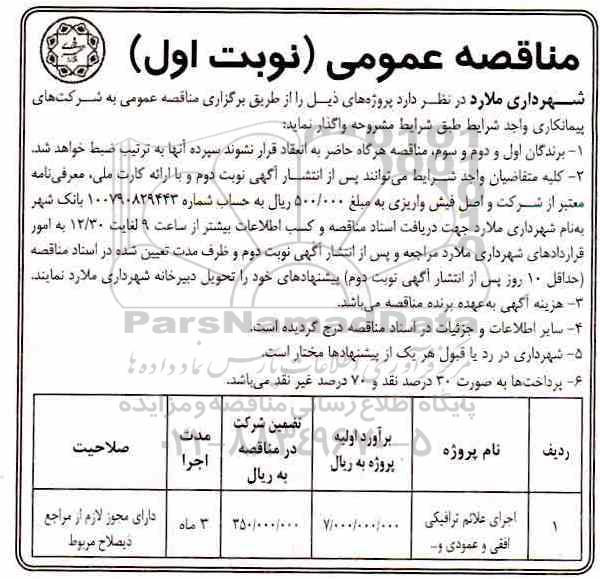 مناقصه عمومی (نوبت اول)
شهرداری ملارد در نظر دارد پروژه‌های ذیل را از طریق برگزاری مناقصه عمومی به شرکت‌های
پیمانکاری واجد شرایط طبق شرایط مشروحه واگذار نماید:
۱- برندگان اول و دوم و سوم، مناقصه هرگاه حاضر به انعقاد قرار نشوند سپرده آنها به ترتیب ضبط خواهد شد.
۲- کلیه متقاضیان واجد شرایط می‌توانند پس از انتشار آگهی نوبت دوم و با ارائه کارت ملی، معرفی‌نامه
معتبر از شرکت و اصل فیش واریزی به مبلغ ۵۰۰/۰۰۰ ریال به حساب شماره ۱۰۰۷۹۰۸۲۹۴۴۳ بانک شهر
به‌نام شهرداری ملارد جهت دریافت اسناد مناقصه و کسب اطلاعات بیشتر از ساعت ۹ لغایت ۱۲/۳۰ به امور
قراردادهای شهرداری ملارد مراجعه و پس از انتشار آگهی نوبت دوم و ظرف مدت تعیین شده در اسناد مناقصه
(حداقل ۱۰ روز پس از انتشار آگهی نوبت دوم) پیشنهادهای خود را تحویل دبیرخانه شهرداری ملارد نمایند.
۳- هزینه آگهی به‌عهده برنده مناقصه می‌باشد.
ParsNamadData
۴- سایر اطلاعات و جزئیات در اسناد مناقصه درج گردیده است.
۵- شهرداری در رد یا قبول هر یک از پیشنهادها مختار است.
۶- پرداخت‌ها به صورت ۳۰ درصد نقد و ۷۰ درصد غیر نقد می‌باشد.
پایگاه اطلاع رسانی مناقصه و مزایده
۰۲۱-۸۸۳۴۹۶۷۰-۵
ردیف
نام پروژه
برآورد اولیه
پروژه به ریال
تضمین شرکت
در مناقصه
به ریال
مدت
اجرا
صلاحیت
۱
اجرای علائم ترافیکی
افقی و عمودی و...
۷/۰۰۰/۰۰۰/۰۰۰
۳۵۰/۰۰۰/۰۰۰
۳ ماه
دارای مجوز لازم از مراجع
ذیصلاح مربوط